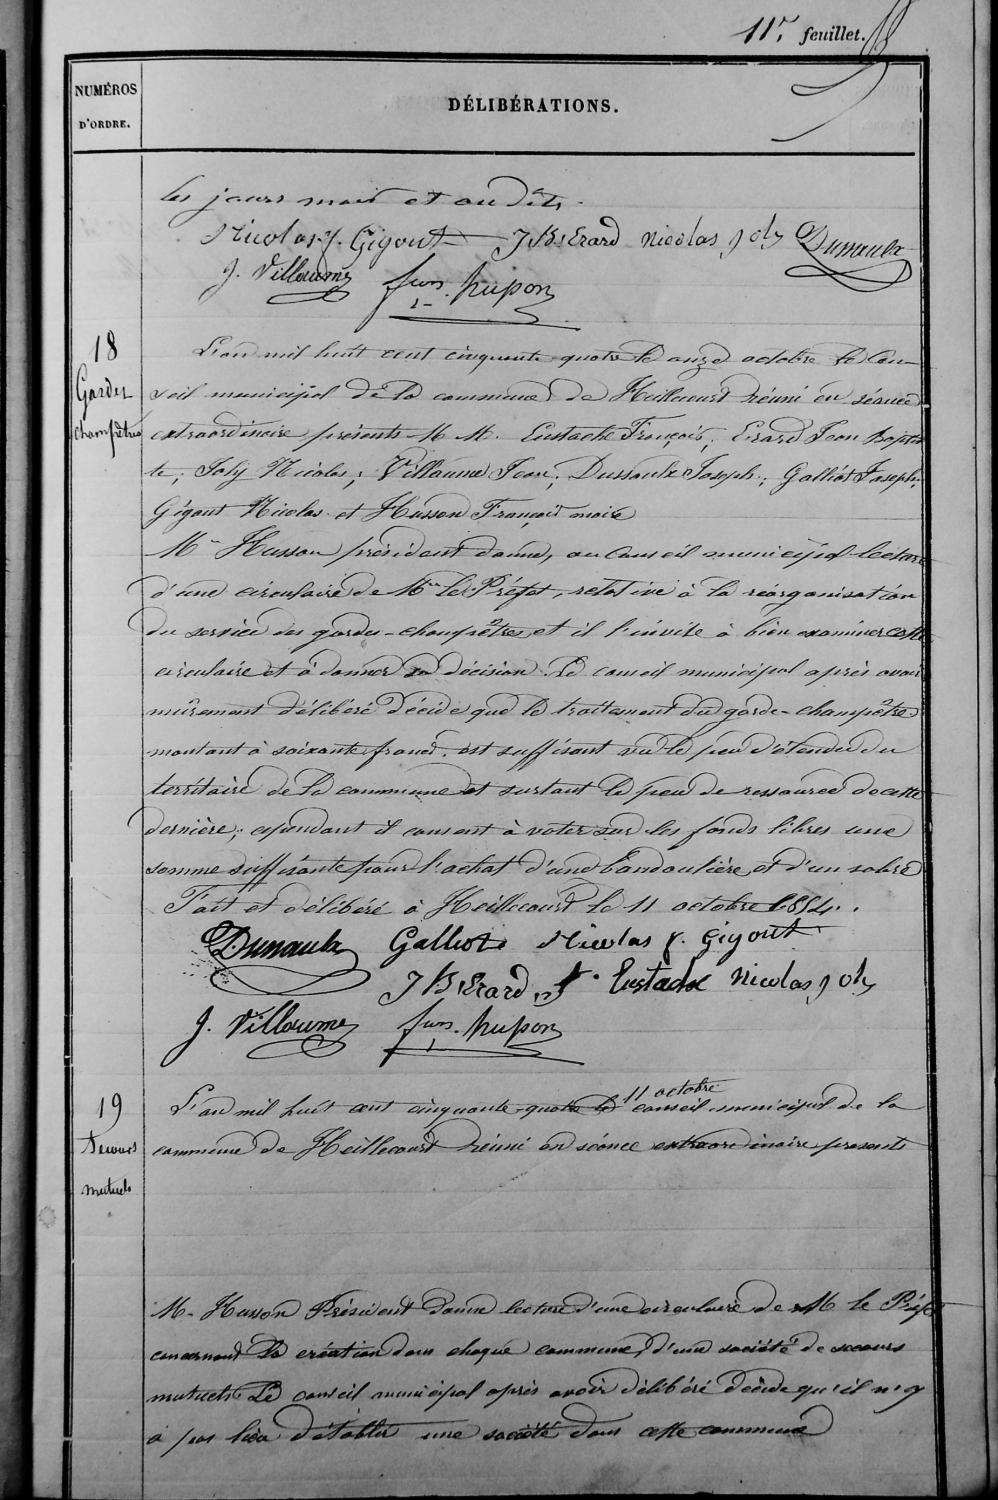 11e. feuillet.
NUMÉROS
D'ORDRE.
DÉLIBÉRATIONS.
les jours mois et an dits.
Nicolas f. Gigout JB Erard nicolas joly Dussaulx
J. Villaume fçois husson
18
Gardes
champêtres
L'an mil huit cent cinquante-quatre le onze octobre le Con-
seil municipal de la commune de Heillecourt réuni en séance
extraordinaire présents M M. Eustache François, Erard Jean Baptis
te; Joly Nicolas; Villaume Jean; Dussaulx Joseph; Galliot Joseph;
Gigout Nicolas et Husson François maire
Mr Husson président donne, au Conseil municipal lecture
d'une circulaire de Mr le Préfet, relative à la réorganisation
du service des gardes-champêtres, et il l'invite à bien examiner cette
circulaire et à donner sa décision. Le conseil municipal après avoir
mûrement délibéré décide que le traitement du garde-champêtre
montant à soixante francs est suffisant vu le peu d'étendue du
territoire de la commune et surtout le peu de ressource de cette
dernière; cependant il consent à voter sur les fonds libres une
somme suffisante pour l'achat d'une bandoulière et d'un sabre
Fait et délibéré à Heillecourt le 11 octobre 1854.
Dussaulx Galliot Nicolas f. Gigout
JB Erard f. Eustache nicolas joly
J. Villaume fçois husson
19
Secours
mutuels
11 octobre
L'an mil huit cent cinquante-quatre le conseil municipal de la
commune de Heillecourt réuni en séance extraordinaire présents
M. Husson Président donne lecture d'une circulaire de M le Préfet
concernant la création dans chaque commune d'une société de secours
mutuels Le conseil municipal après avoir délibéré décide qu'il n'y
a pas lieu d'établir une société dans cette commune